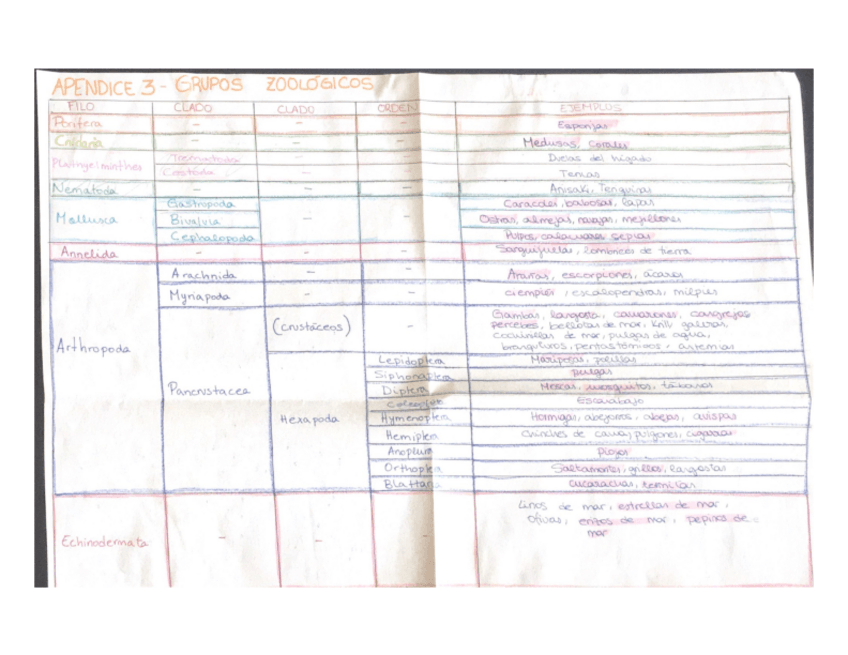 APENDICE 3 - GRUPOS ZOOLÓGICOS
FILO CLADO CLADO ORDEN EJEMPLOS
Porífera - - - Esponjas
Cnidaria - - - Medusas, corales
Platelminthes Trematoda - - Duelas del hígado
Cestoda - - Tenias
Nematoda - - - Anisaki, Triquinas
Mollusca Gastropoda - - Caracoles, babosas, lapas
Bivalvia Ostras, almejas, navajas, mejillones
Cephalopoda Pulpos, calamares, sepias
Annelida - - - Sanguijuelas, lombrices de tierra
Arthropoda Arachnida - - Arañas, escorpiones, ácaros
Myriapoda - - ciempiés, escolopendras, milpiés
Pancrustacea (crustáceos) - Gambas, langosta, camarones, cangrejos
percebes, bellotas de mar, krill, galeras,
cochinillas de mar, pulgas de agua,
branquiuros, pentastómidos, artemias
Hexapoda Lepidoptera Mariposas, polillas
Siphonaptera pulgas
Diptera Moscas, mosquitos, tábanos
Coleoptera Escarabajo
Hymenoptera Hormigas, abejorros, abejas, avispas
Hemiptera Chinches de cama, pulgones, cigarras
Anoplura Piojos
Orthoptera Saltamontes, grillos, langostas
Blattaria cucarachas, termitas
Echinodermata - - - Lirios de mar, estrellas de mar,
Ofiuras, erizos de mar, pepinos de
mar